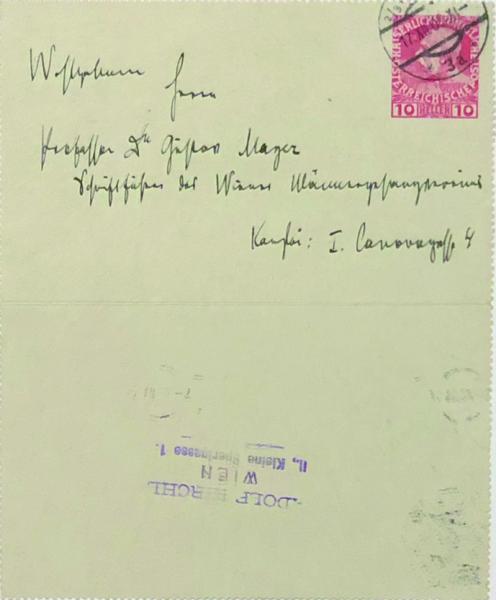 Wohlgeboren
Herrn
Professor Dr Gustav Mayer
Schriftführer des Wiener Männergesangvereines
Kanzlei: I. Canovagasse 4
KAISERLICHE KÖNIGLICHE
ÖSTERREICHISCHE POST
10 HELLER 10
17.XII
3d
DOLF
WIEN
II., Kleine Sperlgasse 1.